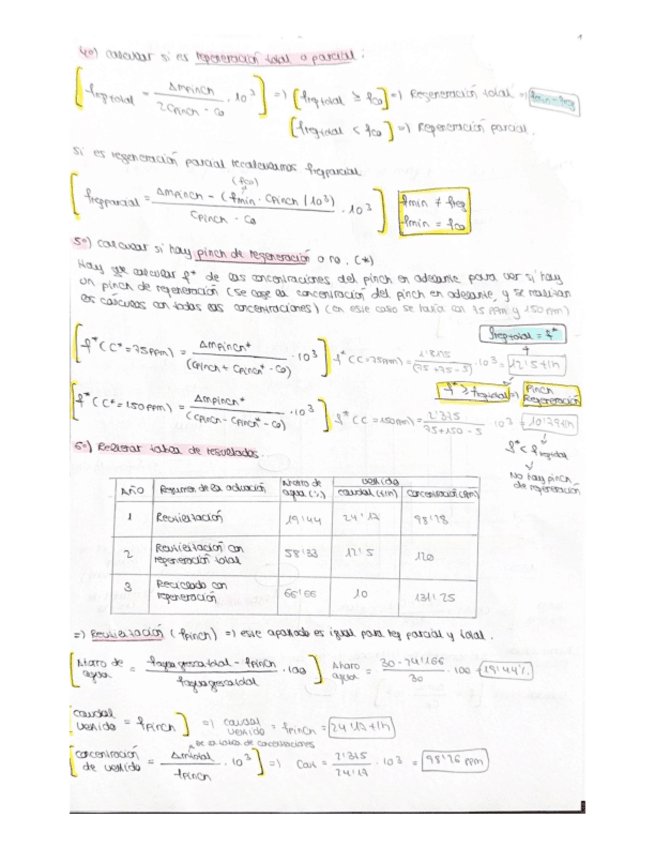 4º) calcular si es regeneración total o parcial:
f regtotal = Δmpinch / 2Cpinch - C0 · 10³ => f regtotal ≥ fc0 => Regeneración total => fmin = freg
f regtotal < fc0 => Regeneración parcial.
Si es regeneración parcial recalculamos fregparcial
(fc0)
fregparcial = Δmpinch - (fmin · Cpinch / 10³) / Cpinch - C0 · 10³
fmin ≠ freg
fmin = fc0
5º) calcular si hay pinch de regeneración o no. (*)
Hay que calcular f* de las concentraciones del pinch en adelante para ver si hay
un pinch de regeneración (se coge la concentración del pinch en adelante, y se realizan
los cálculos con todas las concentraciones) (en este caso se haría con 75 ppm y 150 ppm)
fregtotal = f*
f* (C* = 75ppm) = Δmpinch* / (Cpinch + Cpinch* - C0) · 10³ f* (C = 75ppm) = 1'8125 / (75 + 75 - 5) · 10³ = 12'5 t/h
f* ≥ fregtotal => Pinch Regeneración
f* (C* = 150ppm) = Δmpinch* / (Cpinch - Cpinch* - C0) · 10³ f* (C = 150ppm) = 2'375 / 75 + 150 - 5 · 10³ = 10'79 t/h
f* < fregtotal
No hay pinch
de regeneración
5º) Realizar tabla de resultados.
AÑO Resumen de la actuación Ahorro de agua (%) vertido
caudal (t/h) concentración (ppm)
1 Reutilización 19'44 24'17 98'28
2 Reutilización con regeneración total 58'33 12'5 120
3 Reciclado con regeneración 66'66 10 131'25
=) Reutilización (fpinch) => este apartado es igual para reg parcial y total.
Ahorro de agua = fagua gensa total - fpinch / fagua gensa total · 100 Ahorro agua = 30 - 24'166 / 30 · 100 = 19'44 %
caudal vertido = fpinch => caudal vertido = fpinch = 24'17 t/h
de la tabla de concentraciones
concentración de vertido = Δmtotal / fpinch · 10³ => Csal = 2'375 / 24'17 · 10³ = 98'26 ppm